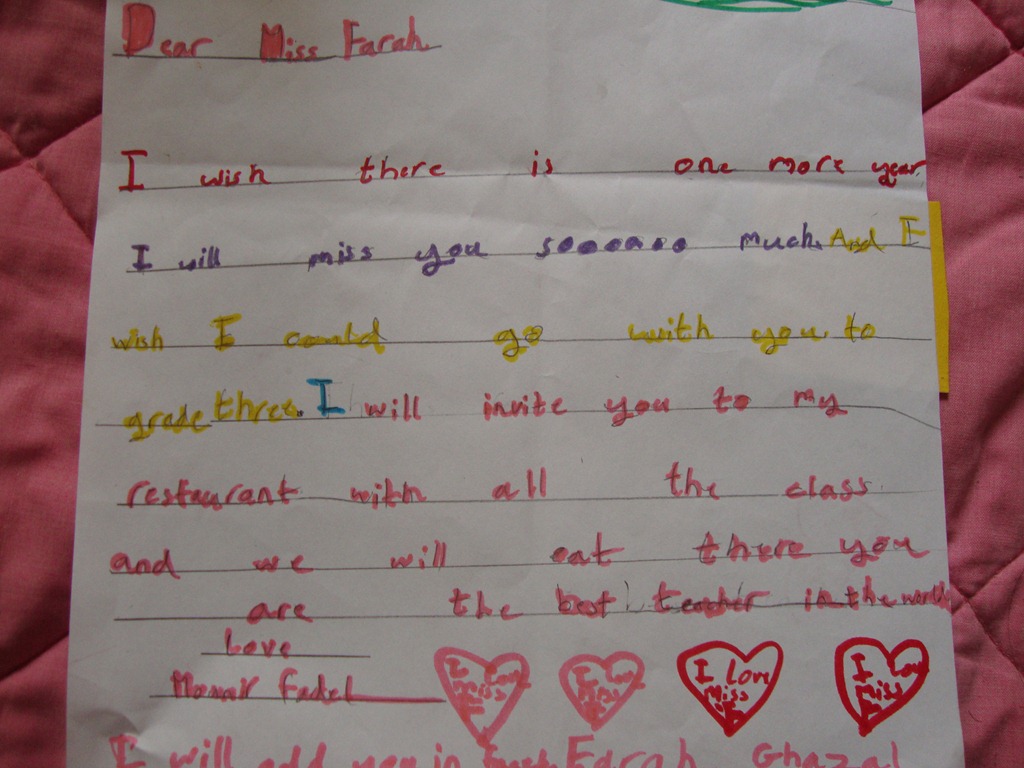 Dear Miss Farah
I wish there is one more year
I will miss you soooooo much. And I
wish I could go with you to
grade three. I will invite you to my
restaurant with all the class
and we will eat there you
are the best teacher in the world
Love
Fadel
I love miss F I love miss F I love miss F I love miss F
I will add you in Farah Ghazal